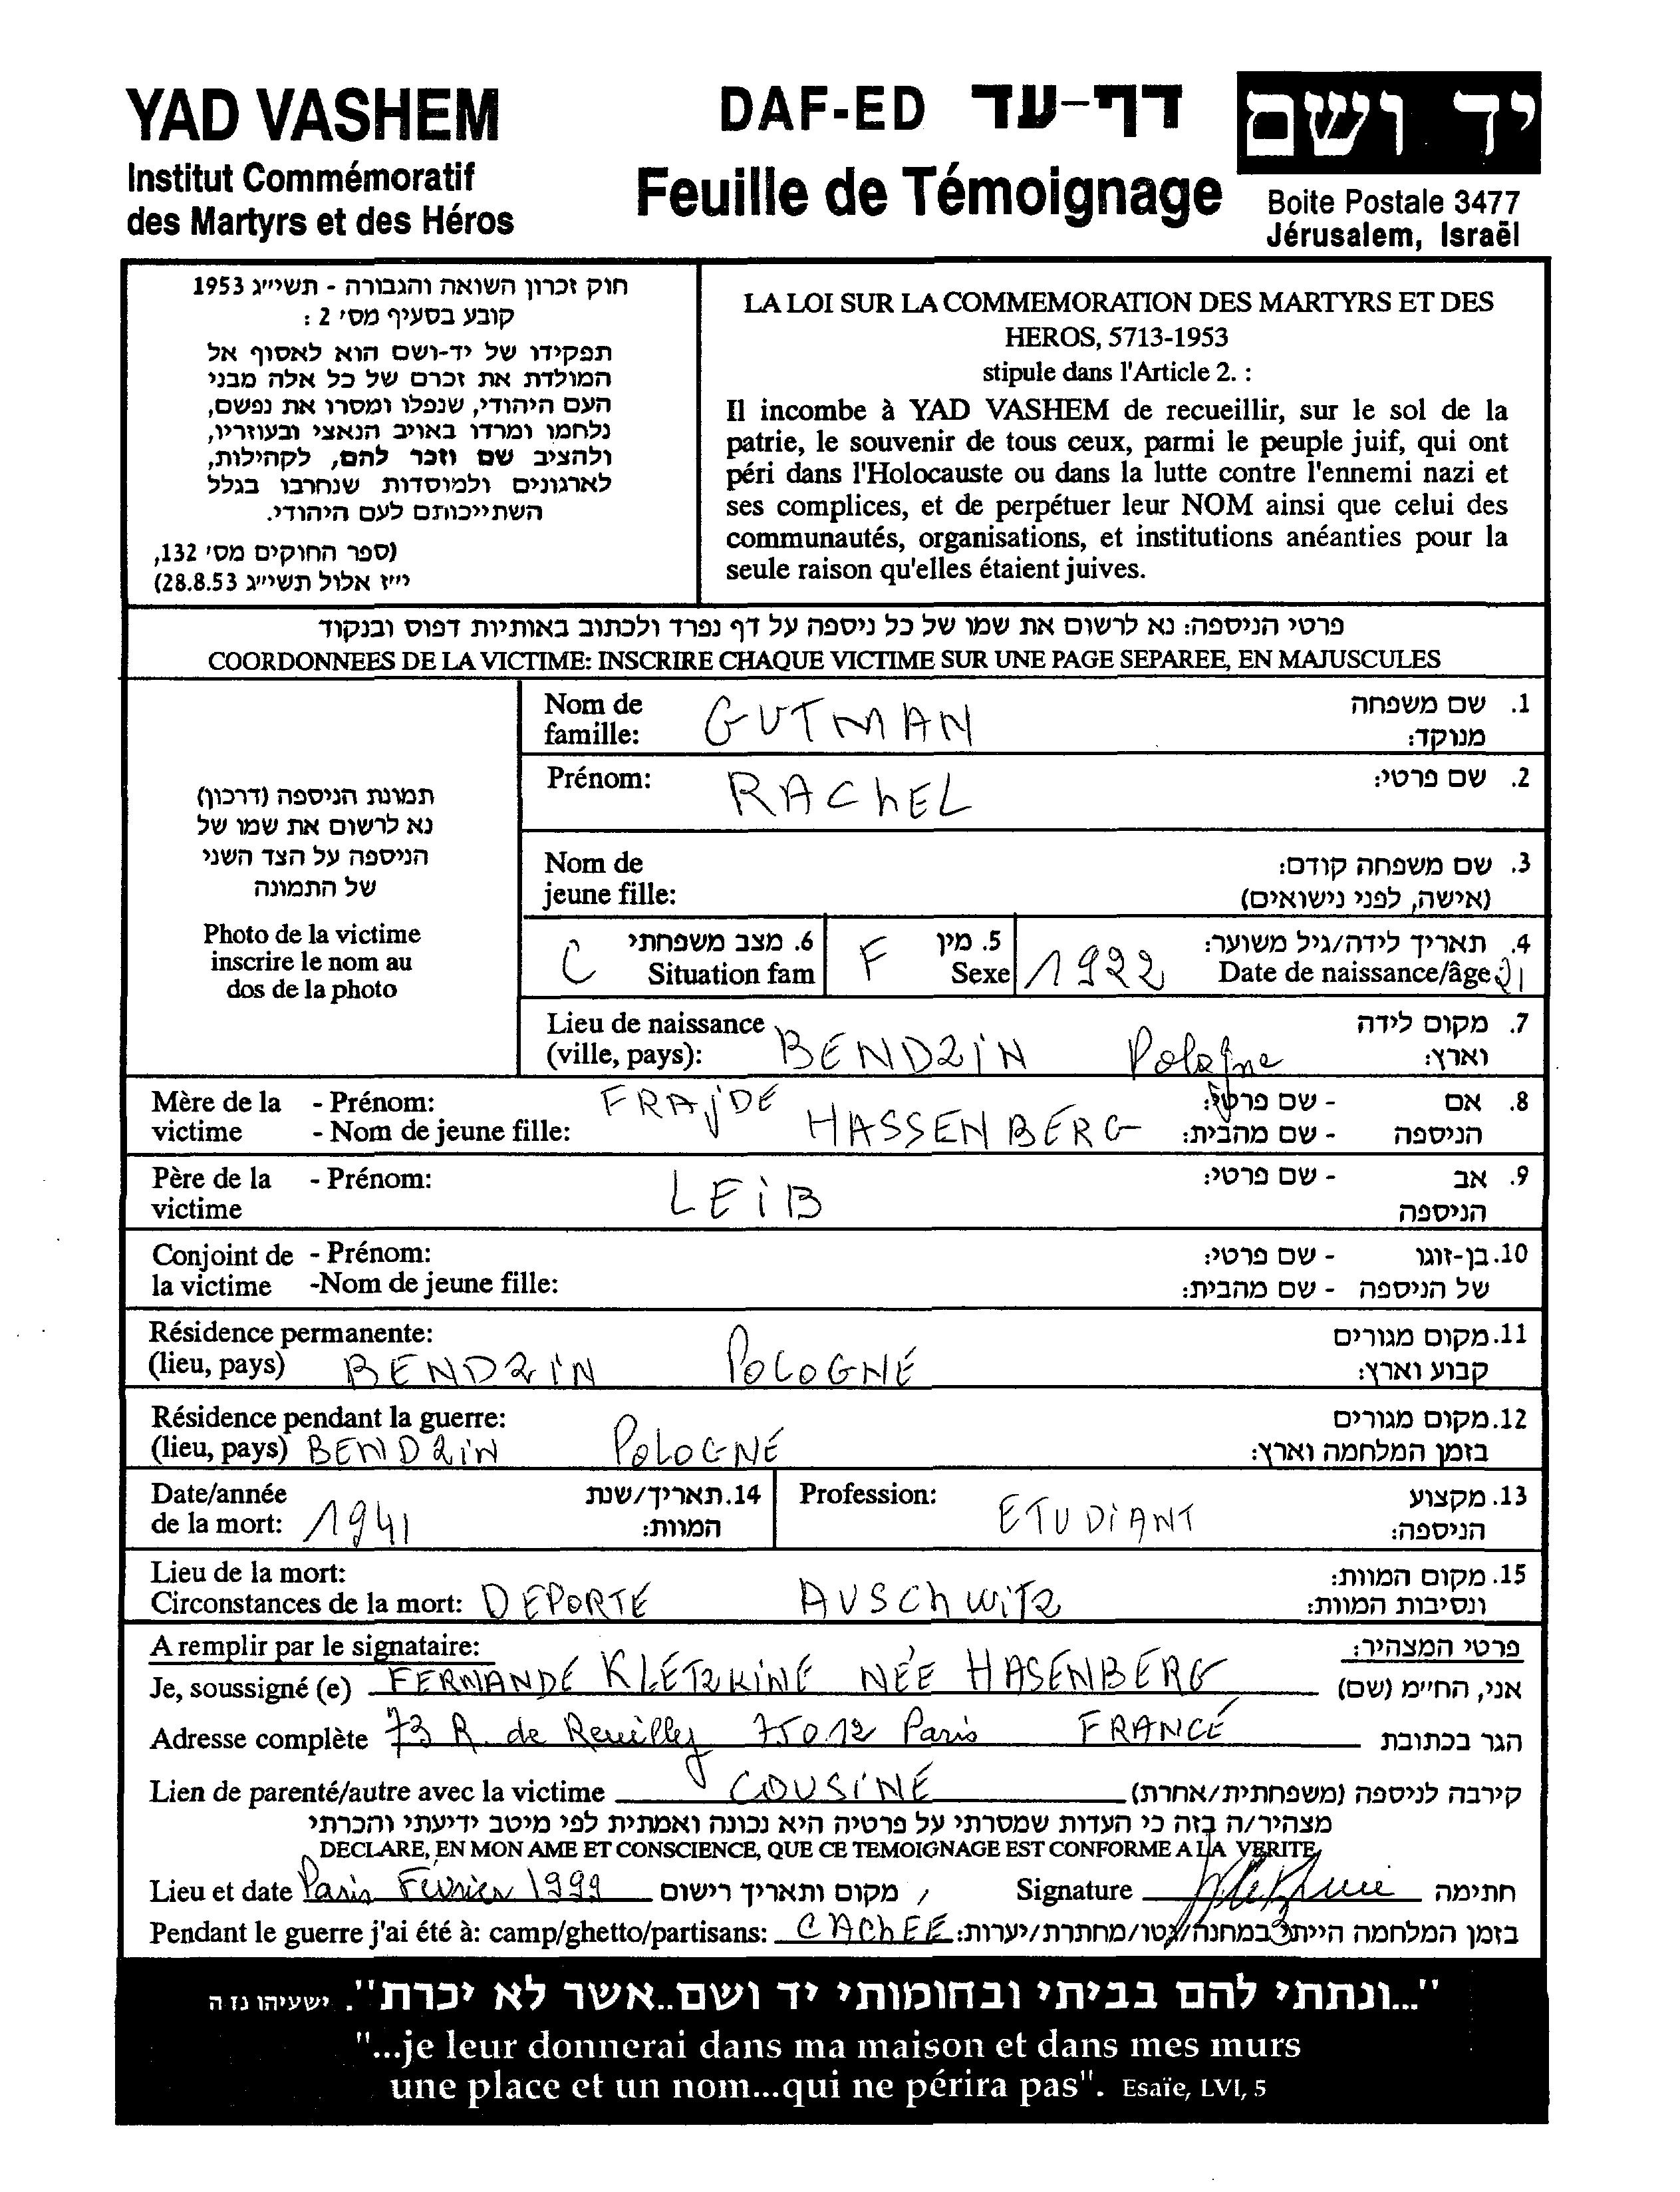 YAD VASHEM
Institut Commémoratif
des Martyrs et des Héros
DAF-ED דף-עד
Feuille de Témoignage
יד ושם
Boite Postale 3477
Jérusalem, Israël
חוק זכרון השואה והגבורה - תשי״ג 1953
קובע בסעיף מס׳ 2 :
תפקידו של יד-ושם הוא לאסוף אל
המולדת את זכרם של כל אלה מבני
העם היהודי, שנפלו ומסרו את נפשם,
נלחמו ומרדו באויב הנאצי ובעוזריו,
ולהציב שם וזכר להם, לקהילות,
לארגונים ולמוסדות שנחרבו בגלל
השתייכותם לעם היהודי.
(ספר החוקים מס׳ 132,
י״ז אלול תשי״ג 28.8.53)
LA LOI SUR LA COMMEMORATION DES MARTYRS ET DES
HEROS, 5713-1953
stipule dans l'Article 2. :
Il incombe à YAD VASHEM de recueillir, sur le sol de la
patrie, le souvenir de tous ceux, parmi le peuple juif, qui ont
péri dans l'Holocauste ou dans la lutte contre l'ennemi nazi et
ses complices, et de perpétuer leur NOM ainsi que celui des
communautés, organisations, et institutions anéanties pour la
seule raison qu'elles étaient juives.
פרטי הניספה: נא לרשום את שמו של כל ניספה על דף נפרד ולכתוב באותיות דפוס ובנקוד
COORDONNEES DE LA VICTIME: INSCRIRE CHAQUE VICTIME SUR UNE PAGE SEPAREE, EN MAJUSCULES
תמונת הניספה (דרכון)
נא לרשום את שמו של
הניספה על הצד השני
של התמונה
Photo de la victime
inscrire le nom au
dos de la photo
Nom de GUTMAN 1. שם משפחה
famille: מנוקד:
Prénom: RACHEL 2. שם פרטי:
Nom de 3. שם משפחה קודם:
jeune fille: (אישה, לפני נישואים)
C 6. מצב משפחתי F 5. מין 1922 4. תאריך לידה/גיל משוער:
Situation fam Sexe Date de naissance/âge 21
Lieu de naissance BENDZIN Pologne 7. מקום לידה
(ville, pays): וארץ:
Mère de la - Prénom: FRAJDE - שם פרטי: 8. אם
victime - Nom de jeune fille: HASSENBERG - שם מהבית: הניספה
Père de la - Prénom: LEIB - שם פרטי: 9. אב
victime הניספה
Conjoint de - Prénom: - שם פרטי: 10. בן-זוגו
la victime -Nom de jeune fille: - שם מהבית: של הניספה
Résidence permanente: 11. מקום מגורים
(lieu, pays) BENDZIN POLOGNE קבוע וארץ:
Résidence pendant la guerre: 12. מקום מגורים
(lieu, pays) BENDZIN POLOGNE בזמן המלחמה וארץ:
Date/année 14. תאריך/שנת Profession: ETUDIANT 13. מקצוע
de la mort: 1941 המוות: הניספה:
Lieu de la mort: 15. מקום המוות:
Circonstances de la mort: DEPORTE AUSCHWITZ ונסיבות המוות:
A remplir par le signataire: פרטי המצהיר:
Je, soussigné (e) FERNANDE KLETZKINE NÉE HASENBERG אני, החי״מ (שם)
Adresse complète 73 R. de Reuilly 75012 Paris FRANCE הגר בכתובת
Lien de parenté/autre avec la victime COUSINE קירבה לניספה (משפחתית/אחרת)
מצהיר/ה בזה כי העדות שמסרתי על פרטיה היא נכונה ואמתית לפי מיטב ידיעתי והכרתי
DECLARE, EN MON AME ET CONSCIENCE, QUE CE TEMOIGNAGE EST CONFORME A LA VERITE,
Lieu et date Paris Février 1999 מקום ותאריך רישום Signature חתימה
Pendant le guerre j'ai été à: camp/ghetto/partisans: CACHÉE בזמן המלחמה הייתי במחנה/גטו/מחתרת/יערות:
"...ונתתי להם בביתי ובחומותי יד ושם..אשר לא יכרת". ישעיהו נז ה
"...je leur donnerai dans ma maison et dans mes murs
une place et un nom...qui ne périra pas". Esaïe, LVI, 5